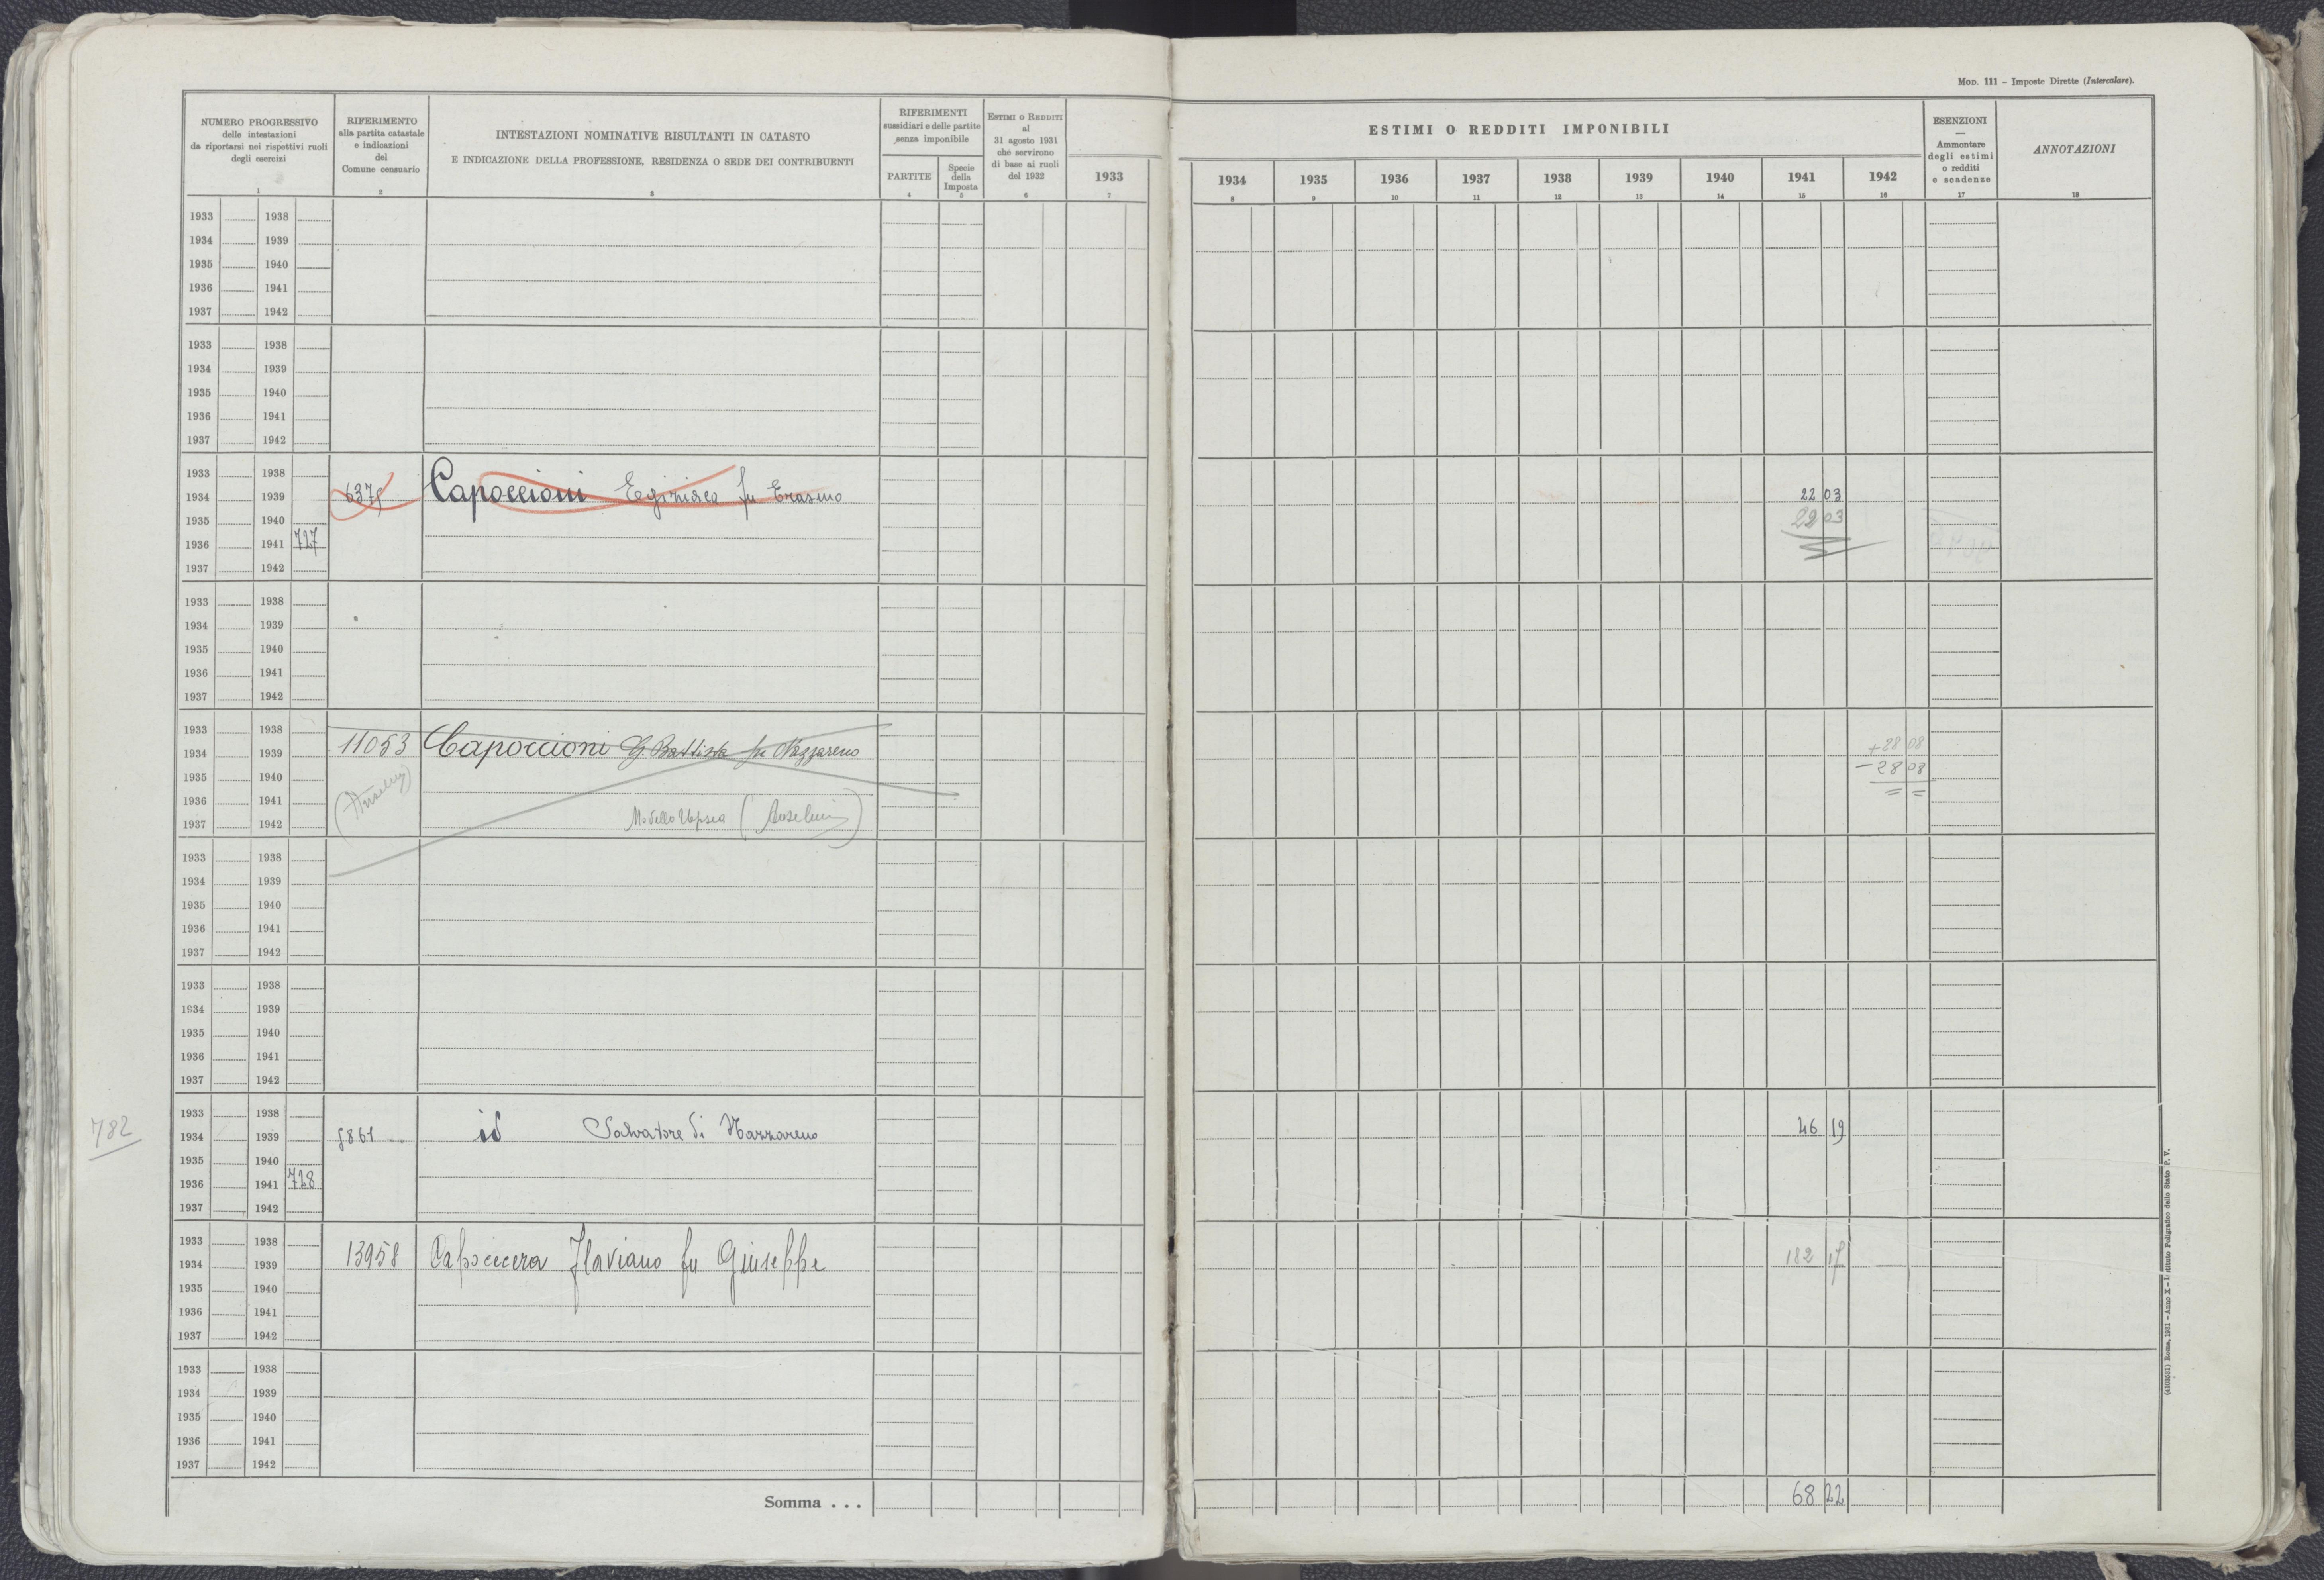 Mod. 111 - Imposte Dirette (Intercalare).
NUMERO PROGRESSIVO
delle intestazioni
da riportarsi nei rispettivi ruoli
degli esercizi
1
RIFERIMENTO
alla partita catastale
e indicazioni
del
Comune censuario
2
INTESTAZIONI NOMINATIVE RISULTANTI IN CATASTO
E INDICAZIONE DELLA PROFESSIONE, RESIDENZA O SEDE DEI CONTRIBUENTI
3
RIFERIMENTI
sussidiari e delle partite
senza imponibile
PARTITE
4
Specie
della
Imposta
5
Estimi o Redditi
al
31 agosto 1931
che servirono
di base ai ruoli
del 1932
6
1933
7
ESTIMI O REDDITI IMPONIBILI
1934 1935 1936 1937 1938 1939 1940 1941 1942
8 9 10 11 12 13 14 15 16
ESENZIONI
—
Ammontare
degli estimi
o redditi
e scadenze
17
ANNOTAZIONI
18
1933 1938
1934 1939
1935 1940
1936 1941
1937 1942
1933 1938
1934 1939
1935 1940
1936 1941
1937 1942
1933 1938
1934 1939 Capoccioni fu Erasmo 22 03
1935 1940 22 03
1936 1941 727
1937 1942
1933 1938
1934 1939
1935 1940
1936 1941
1937 1942
1933 1938
1934 1939 11053 Capoccioni G. Battista fu Nazzareno +28 08
1935 1940 -28 08
1936 1941 (Anselmi) = =
1937 1942 Modello (Anselmi)
1933 1938
1934 1939
1935 1940
1936 1941
1937 1942
1933 1938
1934 1939
1935 1940
1936 1941
1937 1942
1933 1938
782 1934 1939 id Salvatore di Nazzareno 46 19
1935 1940
1936 1941 728
1937 1942
1933 1938
1934 1939 13958 Flaviano fu Giuseppe 182
1935 1940
1936 1941
1937 1942
1933 1938
1934 1939
1935 1940
1936 1941
1937 1942
Somma . . . 68 22
(4103521) Roma, 1931 - Anno X - Istituto Poligrafico dello Stato P. V.